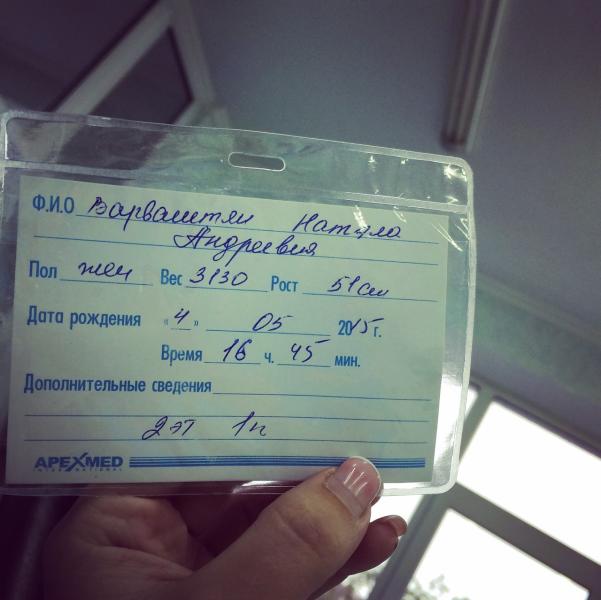 Ф.И.О Варваштян Натэла
Андреевна
Пол жен Вес 3130 Рост 51 см
Дата рождения «4» 05 2015 г.
Время 16 ч. 45 мин.
Дополнительные сведения
2 эт 1 п
APEXMED
INTERNATIONAL